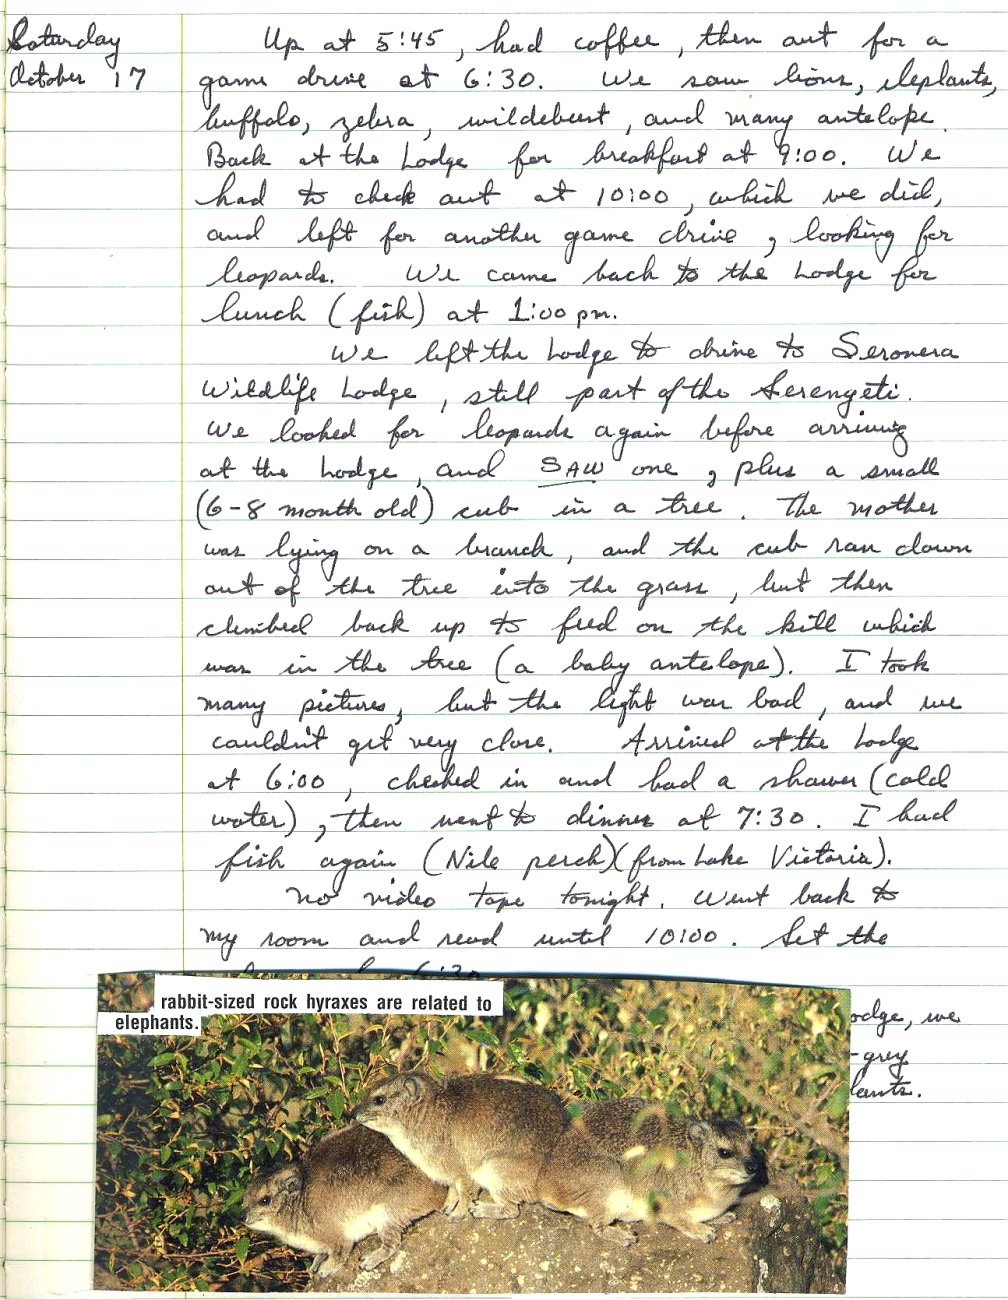 Saturday
October 17
Up at 5:45, had coffee, then out for a
game drive at 6:30. We saw lions, eleplants,
buffalo, zebra, wildebeest, and many antelope.
Back at the Lodge for breakfast at 9:00. We
had to check out at 10:00, which we did,
and left for another game drive, looking for
leopards. We came back to the Lodge for
lunch (fish) at 1:00 pm.
We left the Lodge to drive to Seronera
Wildlife Lodge, still part of the Serengeti.
We looked for leopards again before arriving
at the Lodge, and SAW one, plus a small
(6-8 month old) cub in a tree. The mother
was lying on a branch, and the cub ran down
out of the tree into the grass, but then
climbed back up to feed on the kill which
was in the tree (a baby antelope). I took
many pictures, but the light was bad, and we
couldn't get very close. Arrived at the Lodge
at 6:00, checked in and had a shower (cold
water), then went to dinner at 7:30. I had
fish again (Nile perch) (from Lake Victoria).
No video tape tonight. Went back to
my room and read until 10:00. Set the
6:30
rabbit-sized rock hyraxes are related to
elephants.
odge, we
-grey
lants.